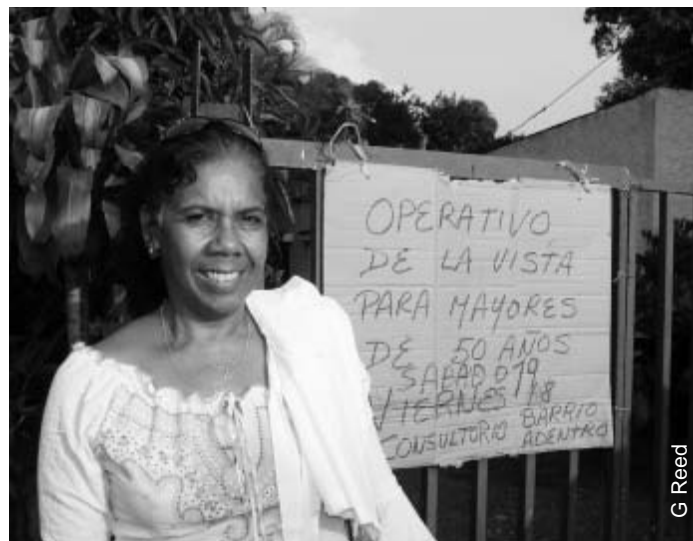 OPERATIVO
DE LA VISTA
PARA MAYORES
DE 50 AÑOS
SABADO 19
VIERNES 18
CONSULTORIO BARRIO
ADENTRO
G Reed